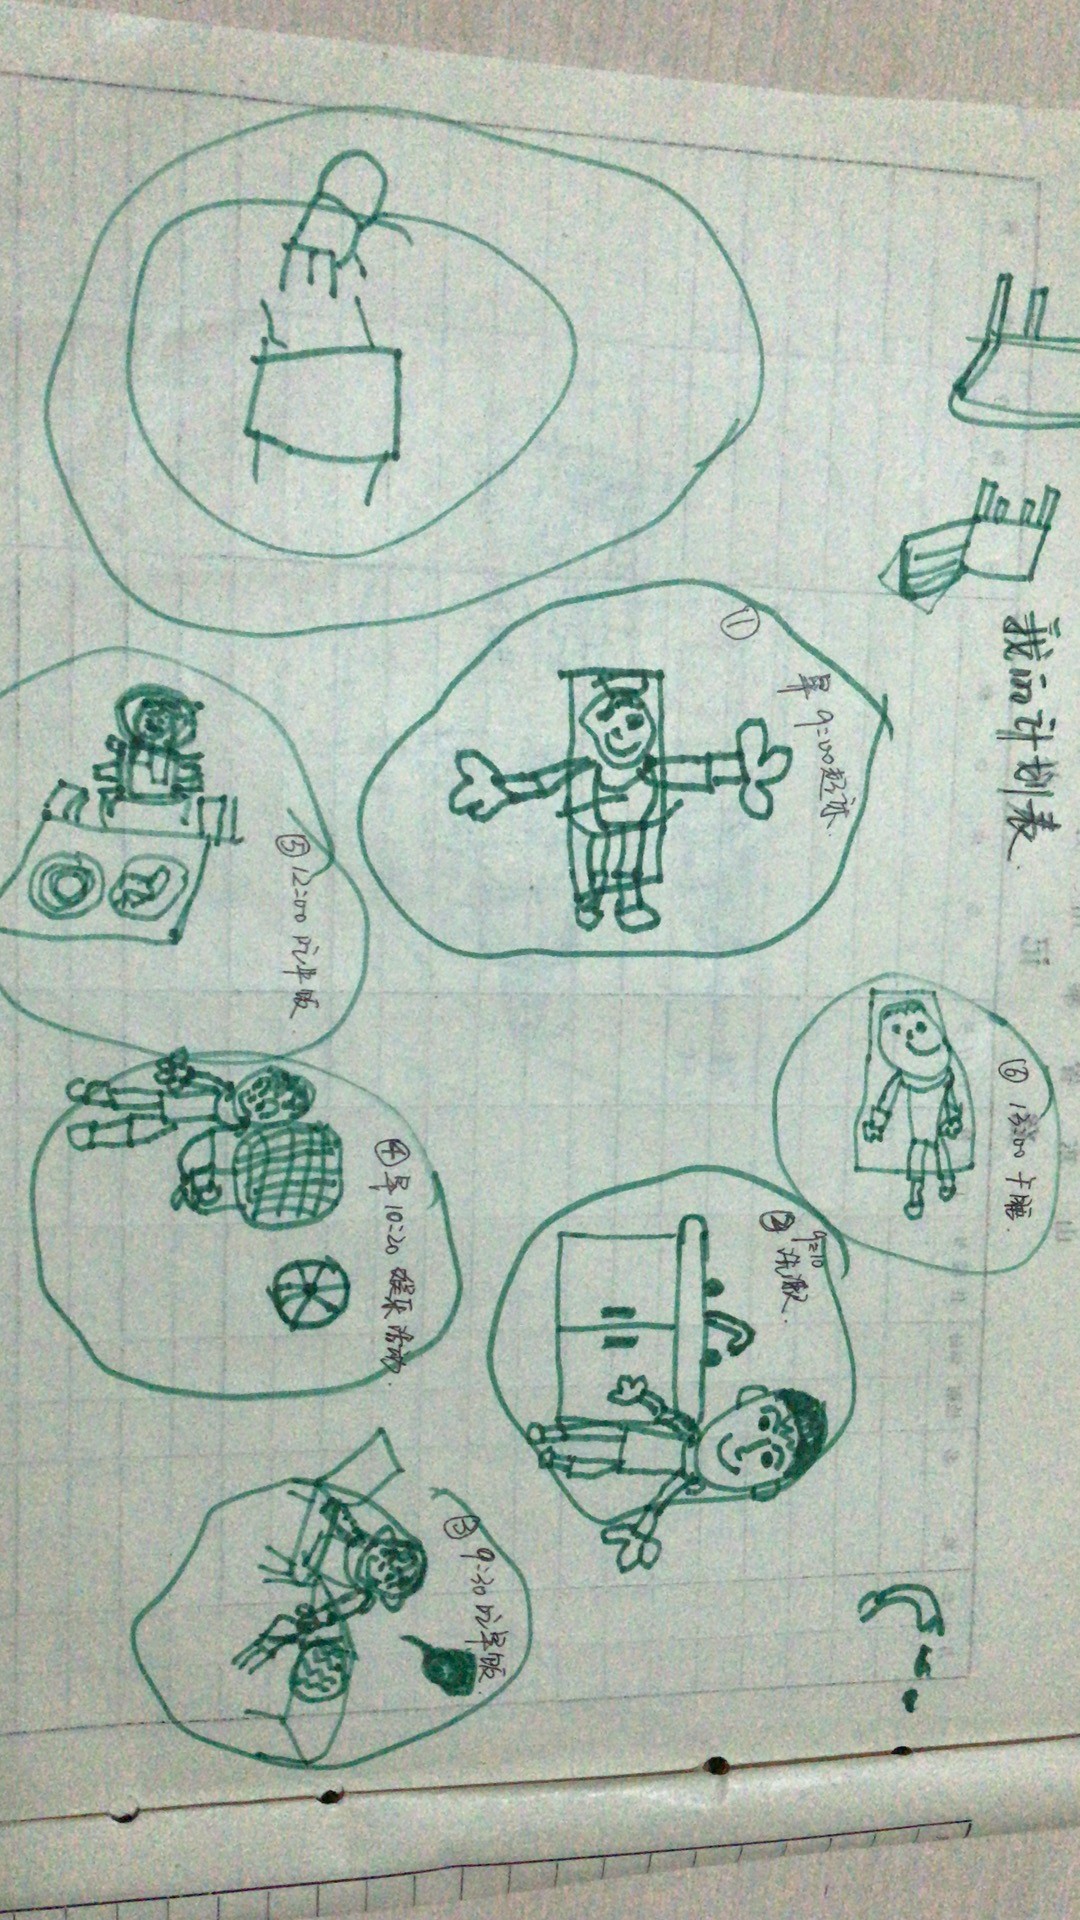 我的计划表
① 早 9:00起床.
② 9:10
洗漱.
③ 9:30吃早饭.
④ 早 10:20 娱乐活动.
⑤ 12:00 吃午饭.
⑥ 13:00 午睡.